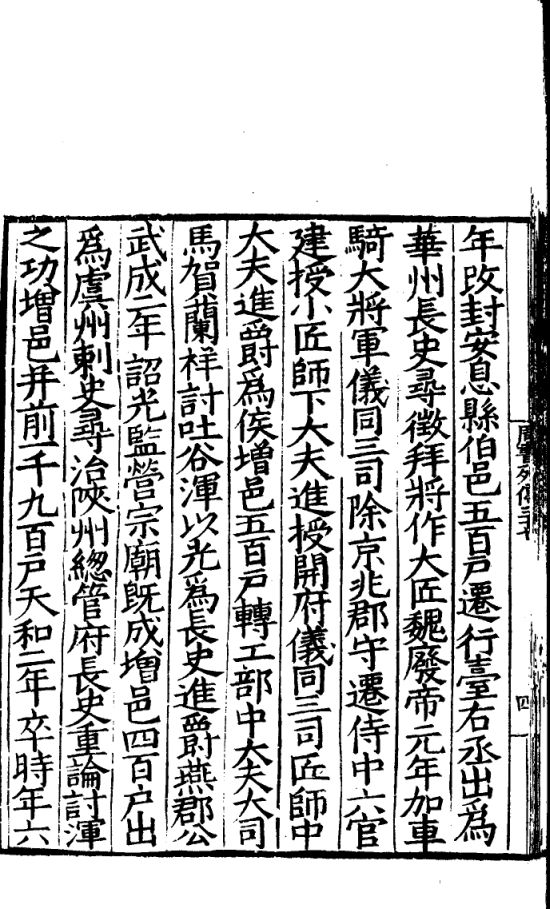 周書列傳三十七
四
年改封安息縣伯邑五百戸遷行臺右丞出爲
華州長史尋徵拜將作大匠魏廢帝元年加車
騎大將軍儀同三司除京兆郡守遷侍中六官
建授小匠師下大夫進授開府儀同三司匠師中
大夫進爵爲侯增邑五百戸轉工部中大夫大司
馬賀蘭祥討吐谷渾以光爲長史進爵燕郡公
武成二年詔光監營宗廟既成增邑四百戸出
爲虞州刺史尋治陜州緫管府長史重論討渾
之功增邑并前一千九百戸天和二年卒時年六